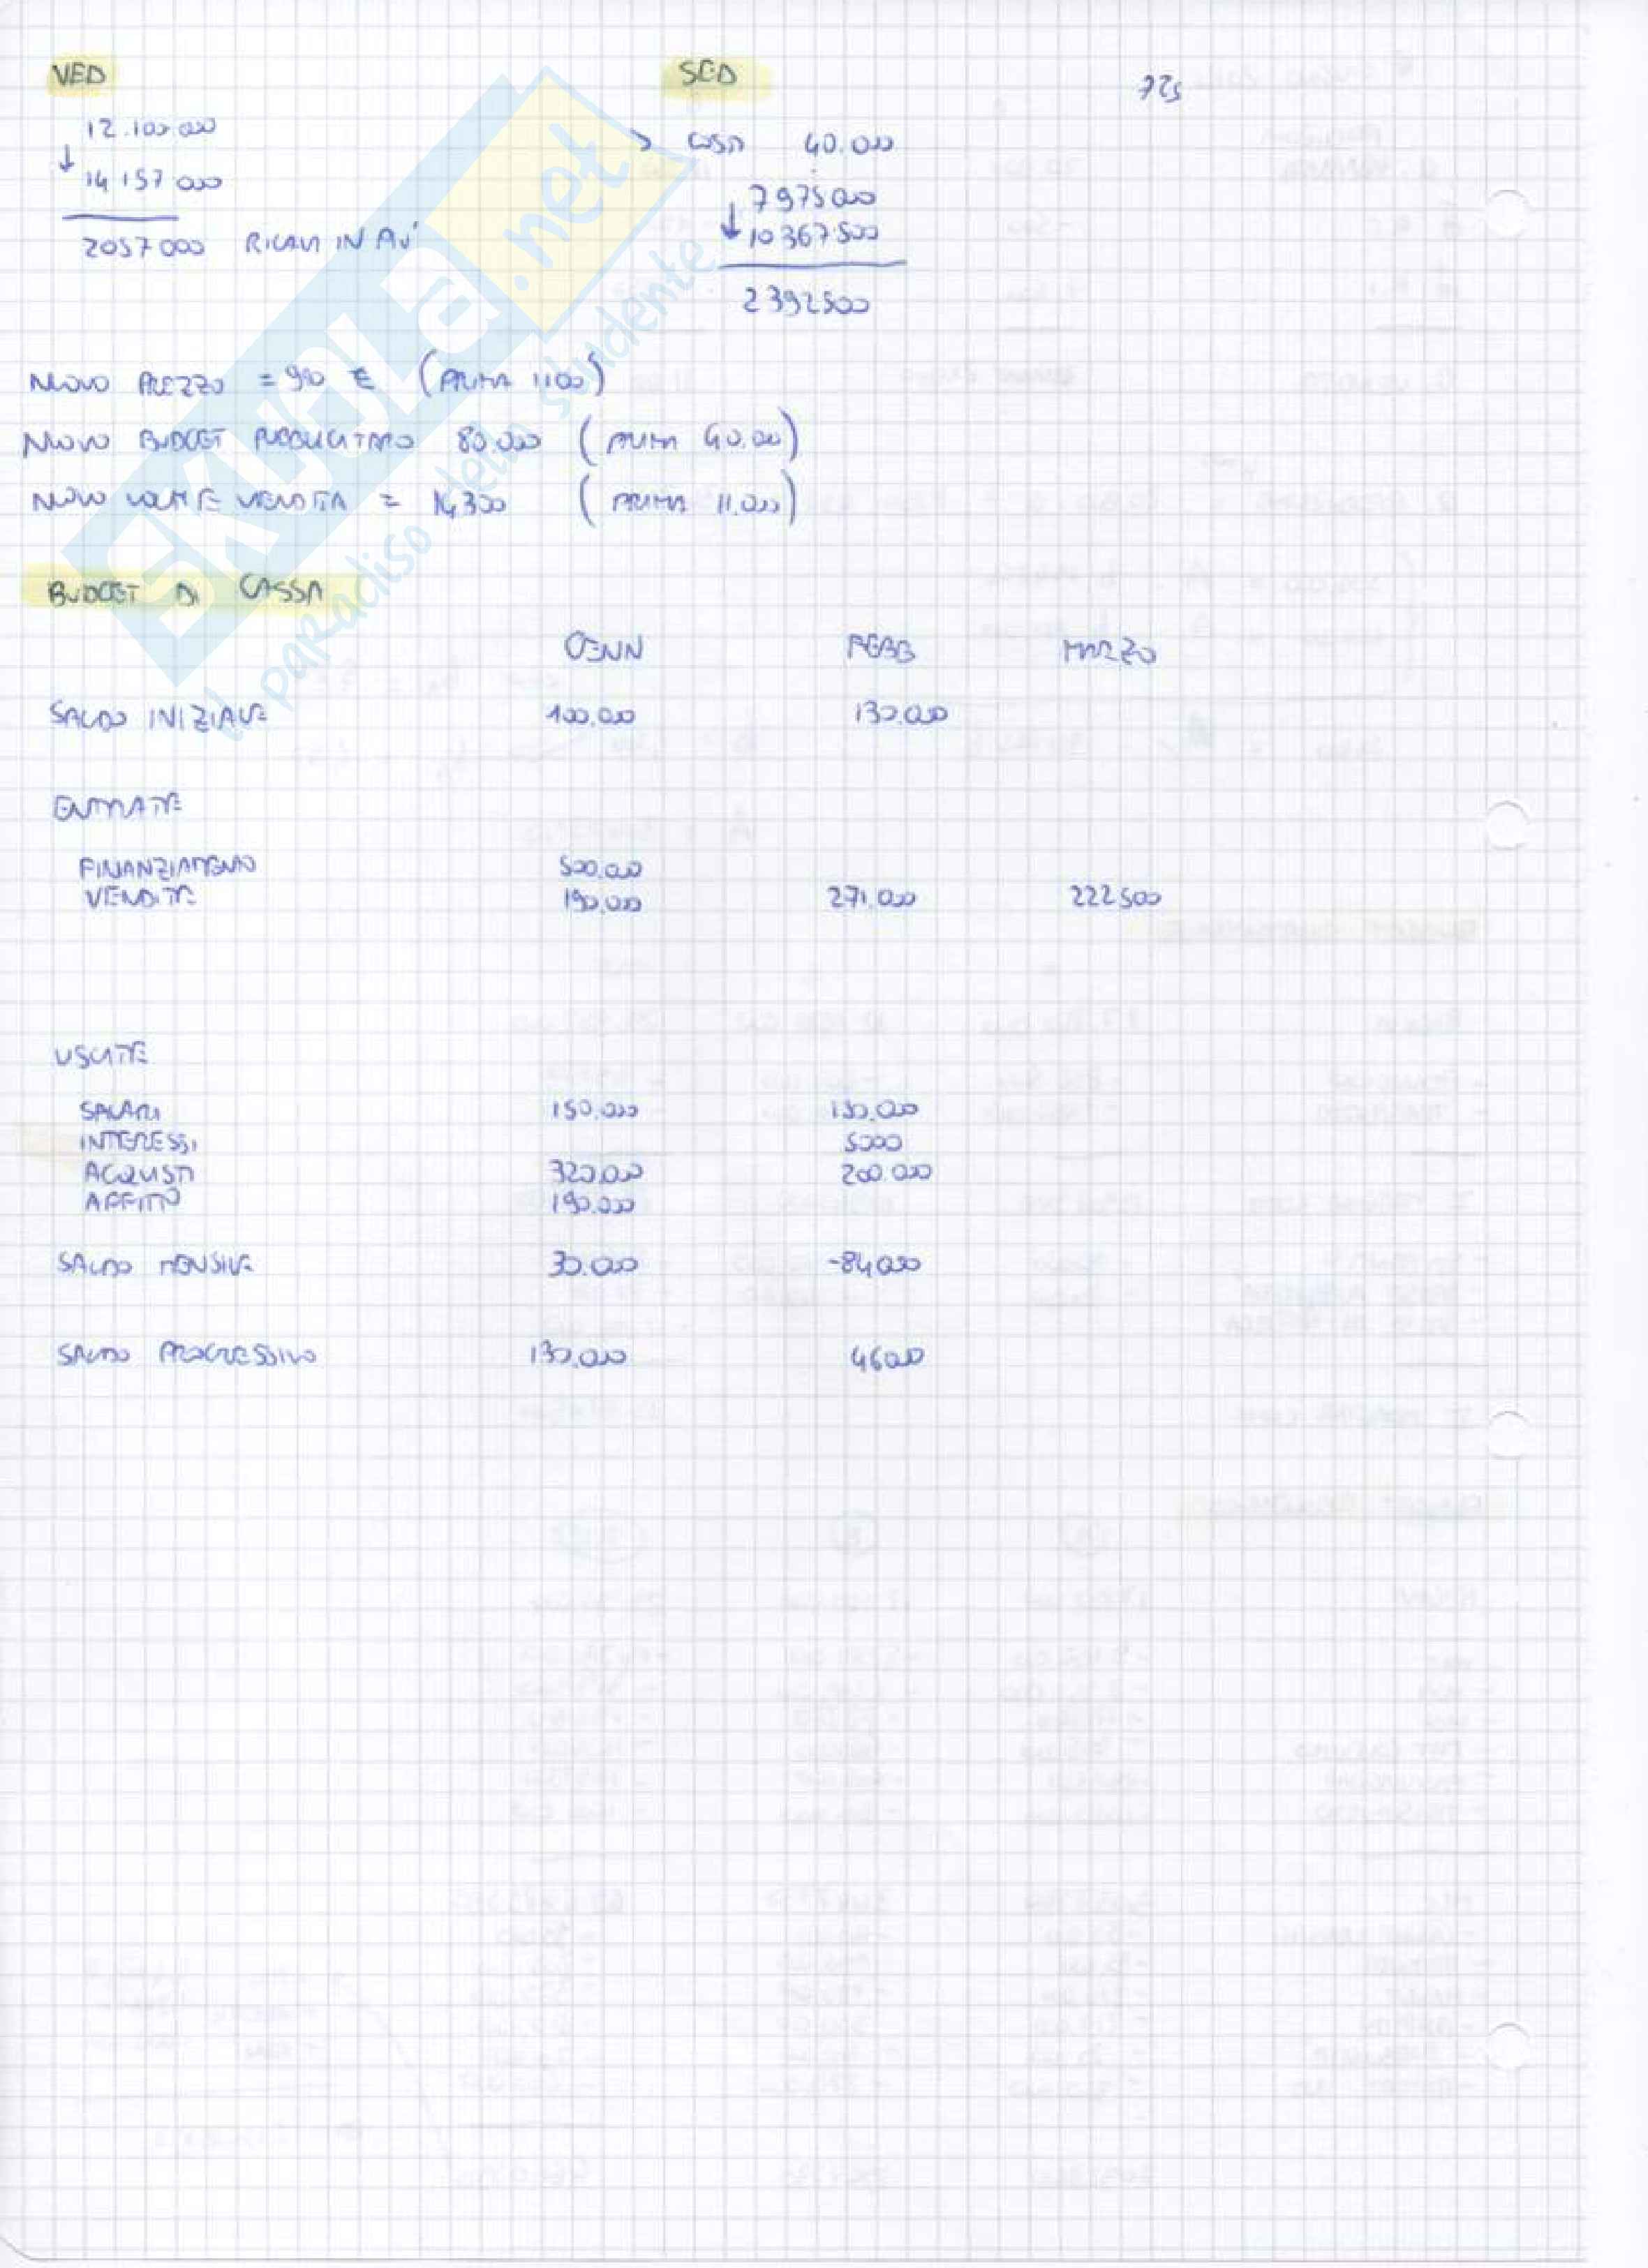 VED
12.100.000
↓ 14 157 000
2057 000 RICAVI IN PIU'
SED 725
> COSTI 40.000
7 975 000
↓ 10 367 500
2 392 500
NUOVO PREZZO = 990 € (PRIMA 1100)
NUOVO BUDGET PUBBLICITARIO 80.000 (PRIMA 40.00)
NUOVO VOLUME VENDITA = 14300 (PRIMA 11.000)
BUDGET DI CASSA
GENN FEBB MARZO
SALDO INIZIALE 100.000 130.000
ENTRATE
FINANZIAMENTO 500.000
VENDITE 190.000 271.000 222 500
USCITE
SALARI 150.000 150.000
INTERESSI 5000
ACQUISTI 320.000 200.000
AFFITTO 190.000
SALDO MENSILE 30.000 -84000
SALDO PROGRESSIVO 130.000 46000
SKUOLA.net
il paradiso dello studente